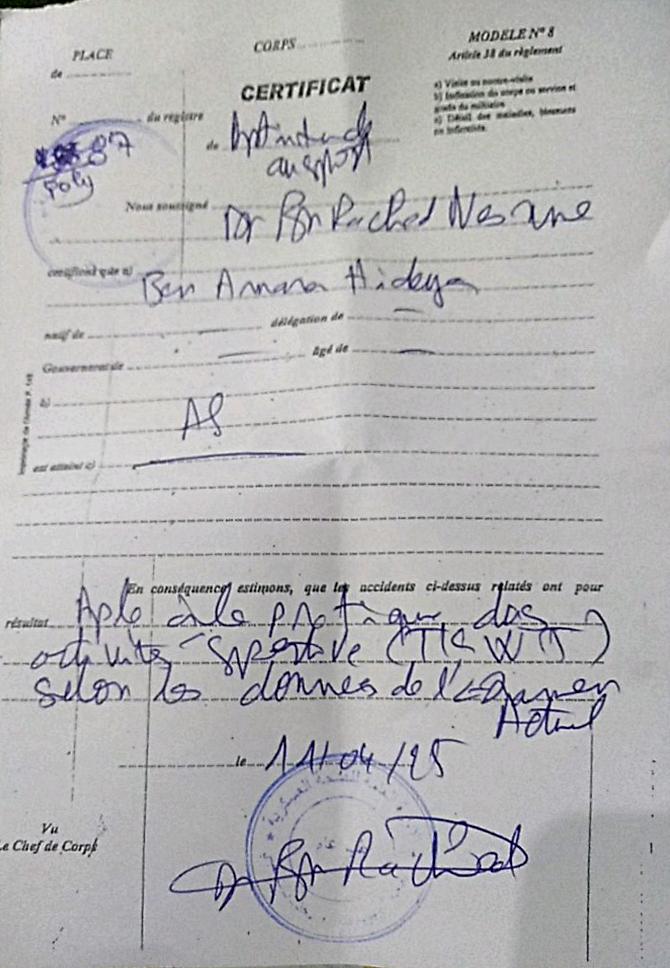 PLACE
CORPS
MODELE N° 8
de
Article 38 du règlement
CERTIFICAT
a) Visite ou contre-visite
b) Indication du corps ou service et
grade du militaire
c) Détail des maladies, blessures
ou infirmités.
N° du registre
de
87
Poly
au sport
Nous soussigné Dr Ben Rached
certifions que a) Ben Amara Hidaya
natif de délégation de
Gouvernorat de âgé de
b)
AS
est atteint c)
En conséquence estimons, que les accidents ci-dessus relatés ont pour
résultat Apte à la pratique des
activités sportive
selon les données de l'examen
Actuel
le 11/04/25
Vu
Le Chef de Corps
Dr Ben Rached